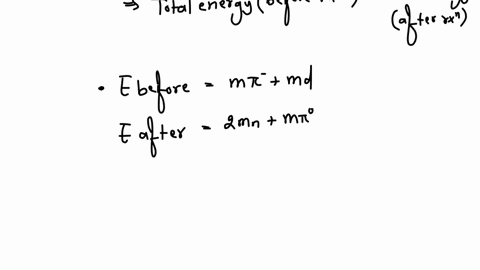 ⇒ Total energy (before
(after rxⁿ)
• E before = mπ⁻ + md
E after = 2mn + mπ⁰